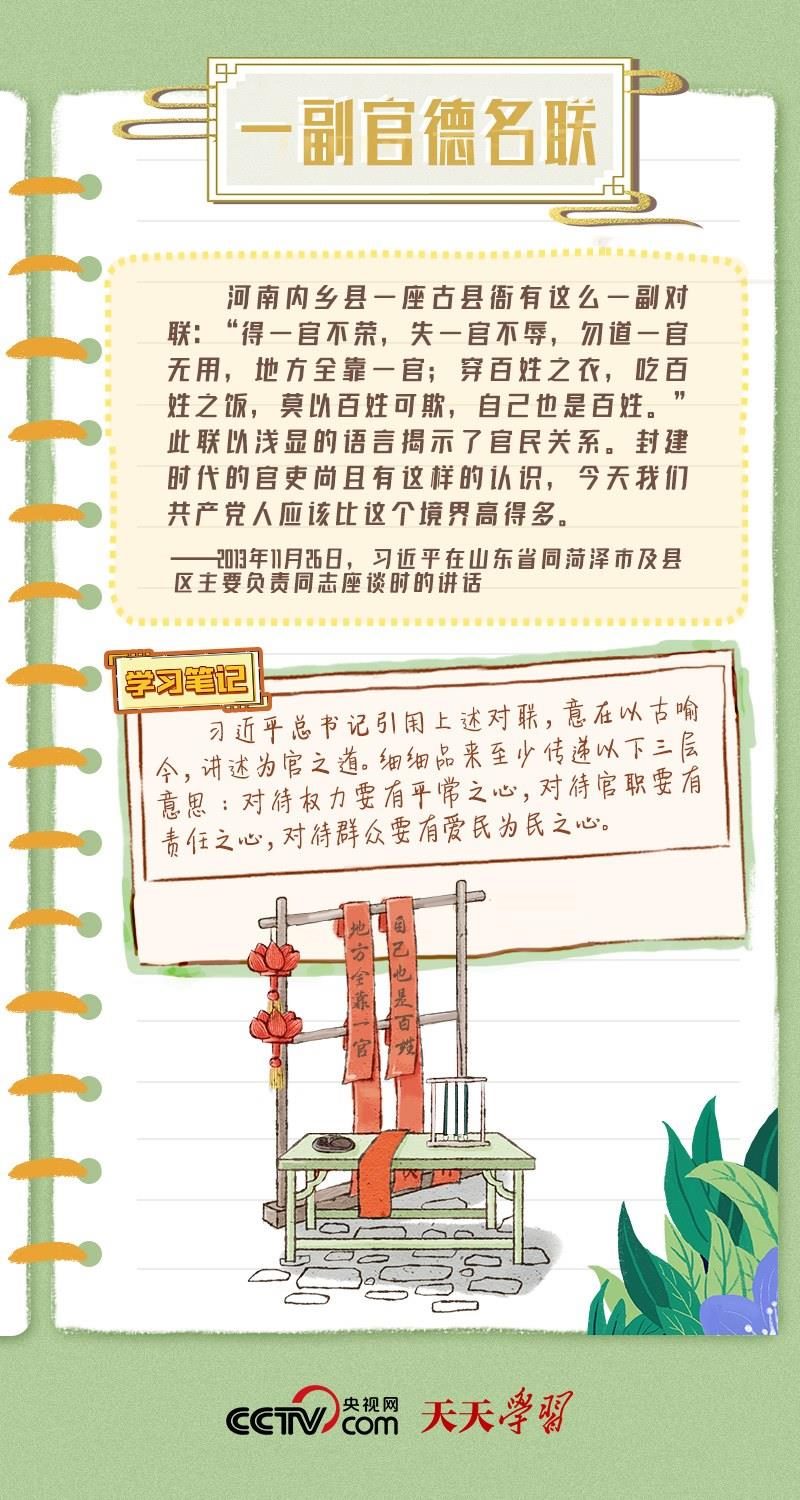 一副官德名联
河南内乡县一座古县衙有这么一副对
联：“得一官不荣，失一官不辱，勿道一官
无用，地方全靠一官；穿百姓之衣，吃百
姓之饭，莫以百姓可欺，自己也是百姓。”
此联以浅显的语言揭示了官民关系。封建
时代的官吏尚且有这样的认识，今天我们
共产党人应该比这个境界高得多。
——2013年11月26日，习近平在山东省同菏泽市及县
区主要负责同志座谈时的讲话
学习笔记
习近平总书记引用上述对联，意在以古喻
今，讲述为官之道。细细品来至少传递以下三层
意思：对待权力要有平常之心，对待官职要有
责任之心，对待群众要有爱民为民之心。
地方全靠一官
自己也是百姓
CCTV.com 央视网
天天学習